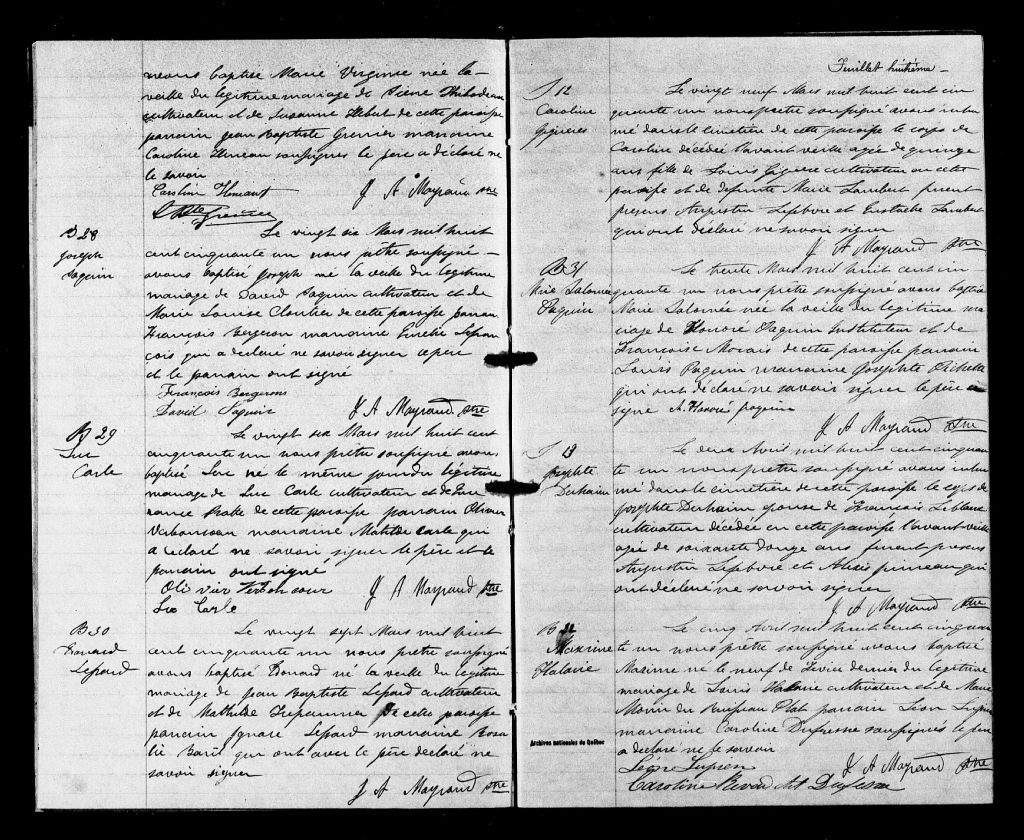 avons baptisé Marie Virginie née la
veille du légitime mariage de Pierre Thibodeau
cultivateur et de Susanne Hebert de cette paroisse
parrain Jean Baptiste Grenier marraine
Caroline Heneau soussignés le père a déclaré ne
le savoir
Caroline J A Mayrand ptre
B 28
Joseph
Paquin
Le vingt six Mars mil huit
cent cinquante un nous prêtre soussigné
avons baptisé Joseph né la veille du légitime
mariage de David Paquin cultivateur et de
Marie Louise Cloutier de cette paroisse parrain
François Bergeron marraine Emélie Lefran
çois qui a déclaré ne savoir signer le père
et le parrain ont signé
François Bergerons
David Paquin J A Mayrand ptre
B 29
Luc
Carle
Le vingt six Mars mil huit cent
cinquante un nous prêtre soussigné avons
baptisé Luc né le même jour du légitime
mariage de Luc Carle cultivateur et de
de cette paroisse parrain Olivier
marraine Matilde Carle qui
a déclaré ne savoir signer le père et le
parrain ont signé
Oli vier
Luc Carle J A Mayrand ptre
B 30
Edouard
Lepard
Le vingt sept Mars mil huit
cent cinquante un nous prêtre soussigné
avons baptisé Edouard né la veille du légitime
mariage de Jean Baptiste Lepard cultivateur
et de Mathilde Trepannier de cette paroisse
parrain Ignace Lepard marraine Rosa
lie Baril qui ont avec le père déclaré ne
savoir signer
J A Mayrand ptre
Feuillet huitième
S 12
Caroline
Gignères
Le vingt neuf Mars mil huit cent cin
quante un nous prêtre soussigné avons inhu
mé dans le cimetière de cette paroisse le corps de
Caroline décédée l'avant veille agée de quinze
ans fille de Louis cultivateur en cette
paroisse et de defunte Marie Lambert furent
presens Augustin Lefebvre et Eustache Lambert
qui ont déclaré ne savoir signer
J A Mayrand ptre
B 31
Mrie Salomée
Paquin
Le trente Mars mil huit cent cin
quante un nous prêtre soussigné avons baptisé
Marie Salomée née la veille du légitime ma
riage de Honoré Paquin Instituteur et de
Françoise Morais de cette paroisse parrain
Louis Paquin marraine Josephte
qui ont déclaré ne savoir signer le père a
signé A. Honoré paquin
J A Mayrand ptre
S 13
Josephte
Duhaim
Le deux Avril mil huit cent cinquan
te un nous prêtre soussigné avons inhu
mé dans le cimetière de cette paroisse le corps de
Josephte Duhaim épouse de François Leblanc
cultivateur décédée en cette paroisse l'avant veille
agée de soixante douze ans furent presens
Augustin Lefebvre et Alexis pineau qui
ont déclaré ne savoir signer
J A Mayrand ptre
B 32
Maxime
Halaire
Le cinq Avril mil huit cent cinquan
te un nous prêtre soussigné avons baptisé
Maxime né le neuf de Fevrier dernier du légitime
mariage de Louis Halaire cultivateur et de Marie
Morin du Ruisseau Plat parrain Léon Lupien
marraine Caroline Dufresne soussignés le père
a déclaré ne le savoir
Léon Lupien J A Mayrand ptre
Caroline Dufresne
Archives nationales du Québec